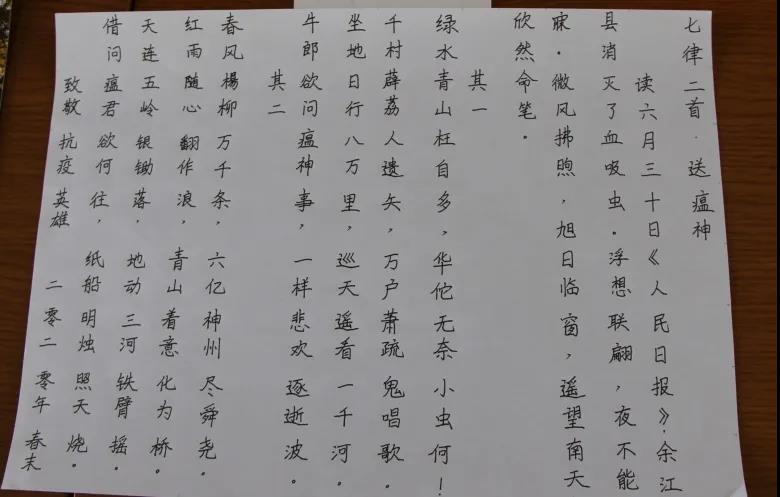 七律二首·送瘟神
读六月三十日《人民日报》,余江
县消灭了血吸虫。浮想联翩,夜不能
寐。微风拂煦,旭日临窗,遥望南天
欣然命笔。
其一
绿水青山枉自多,华佗无奈小虫何!
千村薜荔人遗矢,万户萧疏鬼唱歌。
坐地日行八万里,巡天遥看一千河。
牛郎欲问瘟神事,一样悲欢逐逝波。
其二
春风楊柳万千条,六亿神州尽舜尧。
红雨随心翻作浪,青山着意化为桥。
天连五岭银锄落,地动三河铁臂摇。
借问瘟君欲何往,纸船明烛照天烧。
致敬抗疫英雄 二零二零年春末